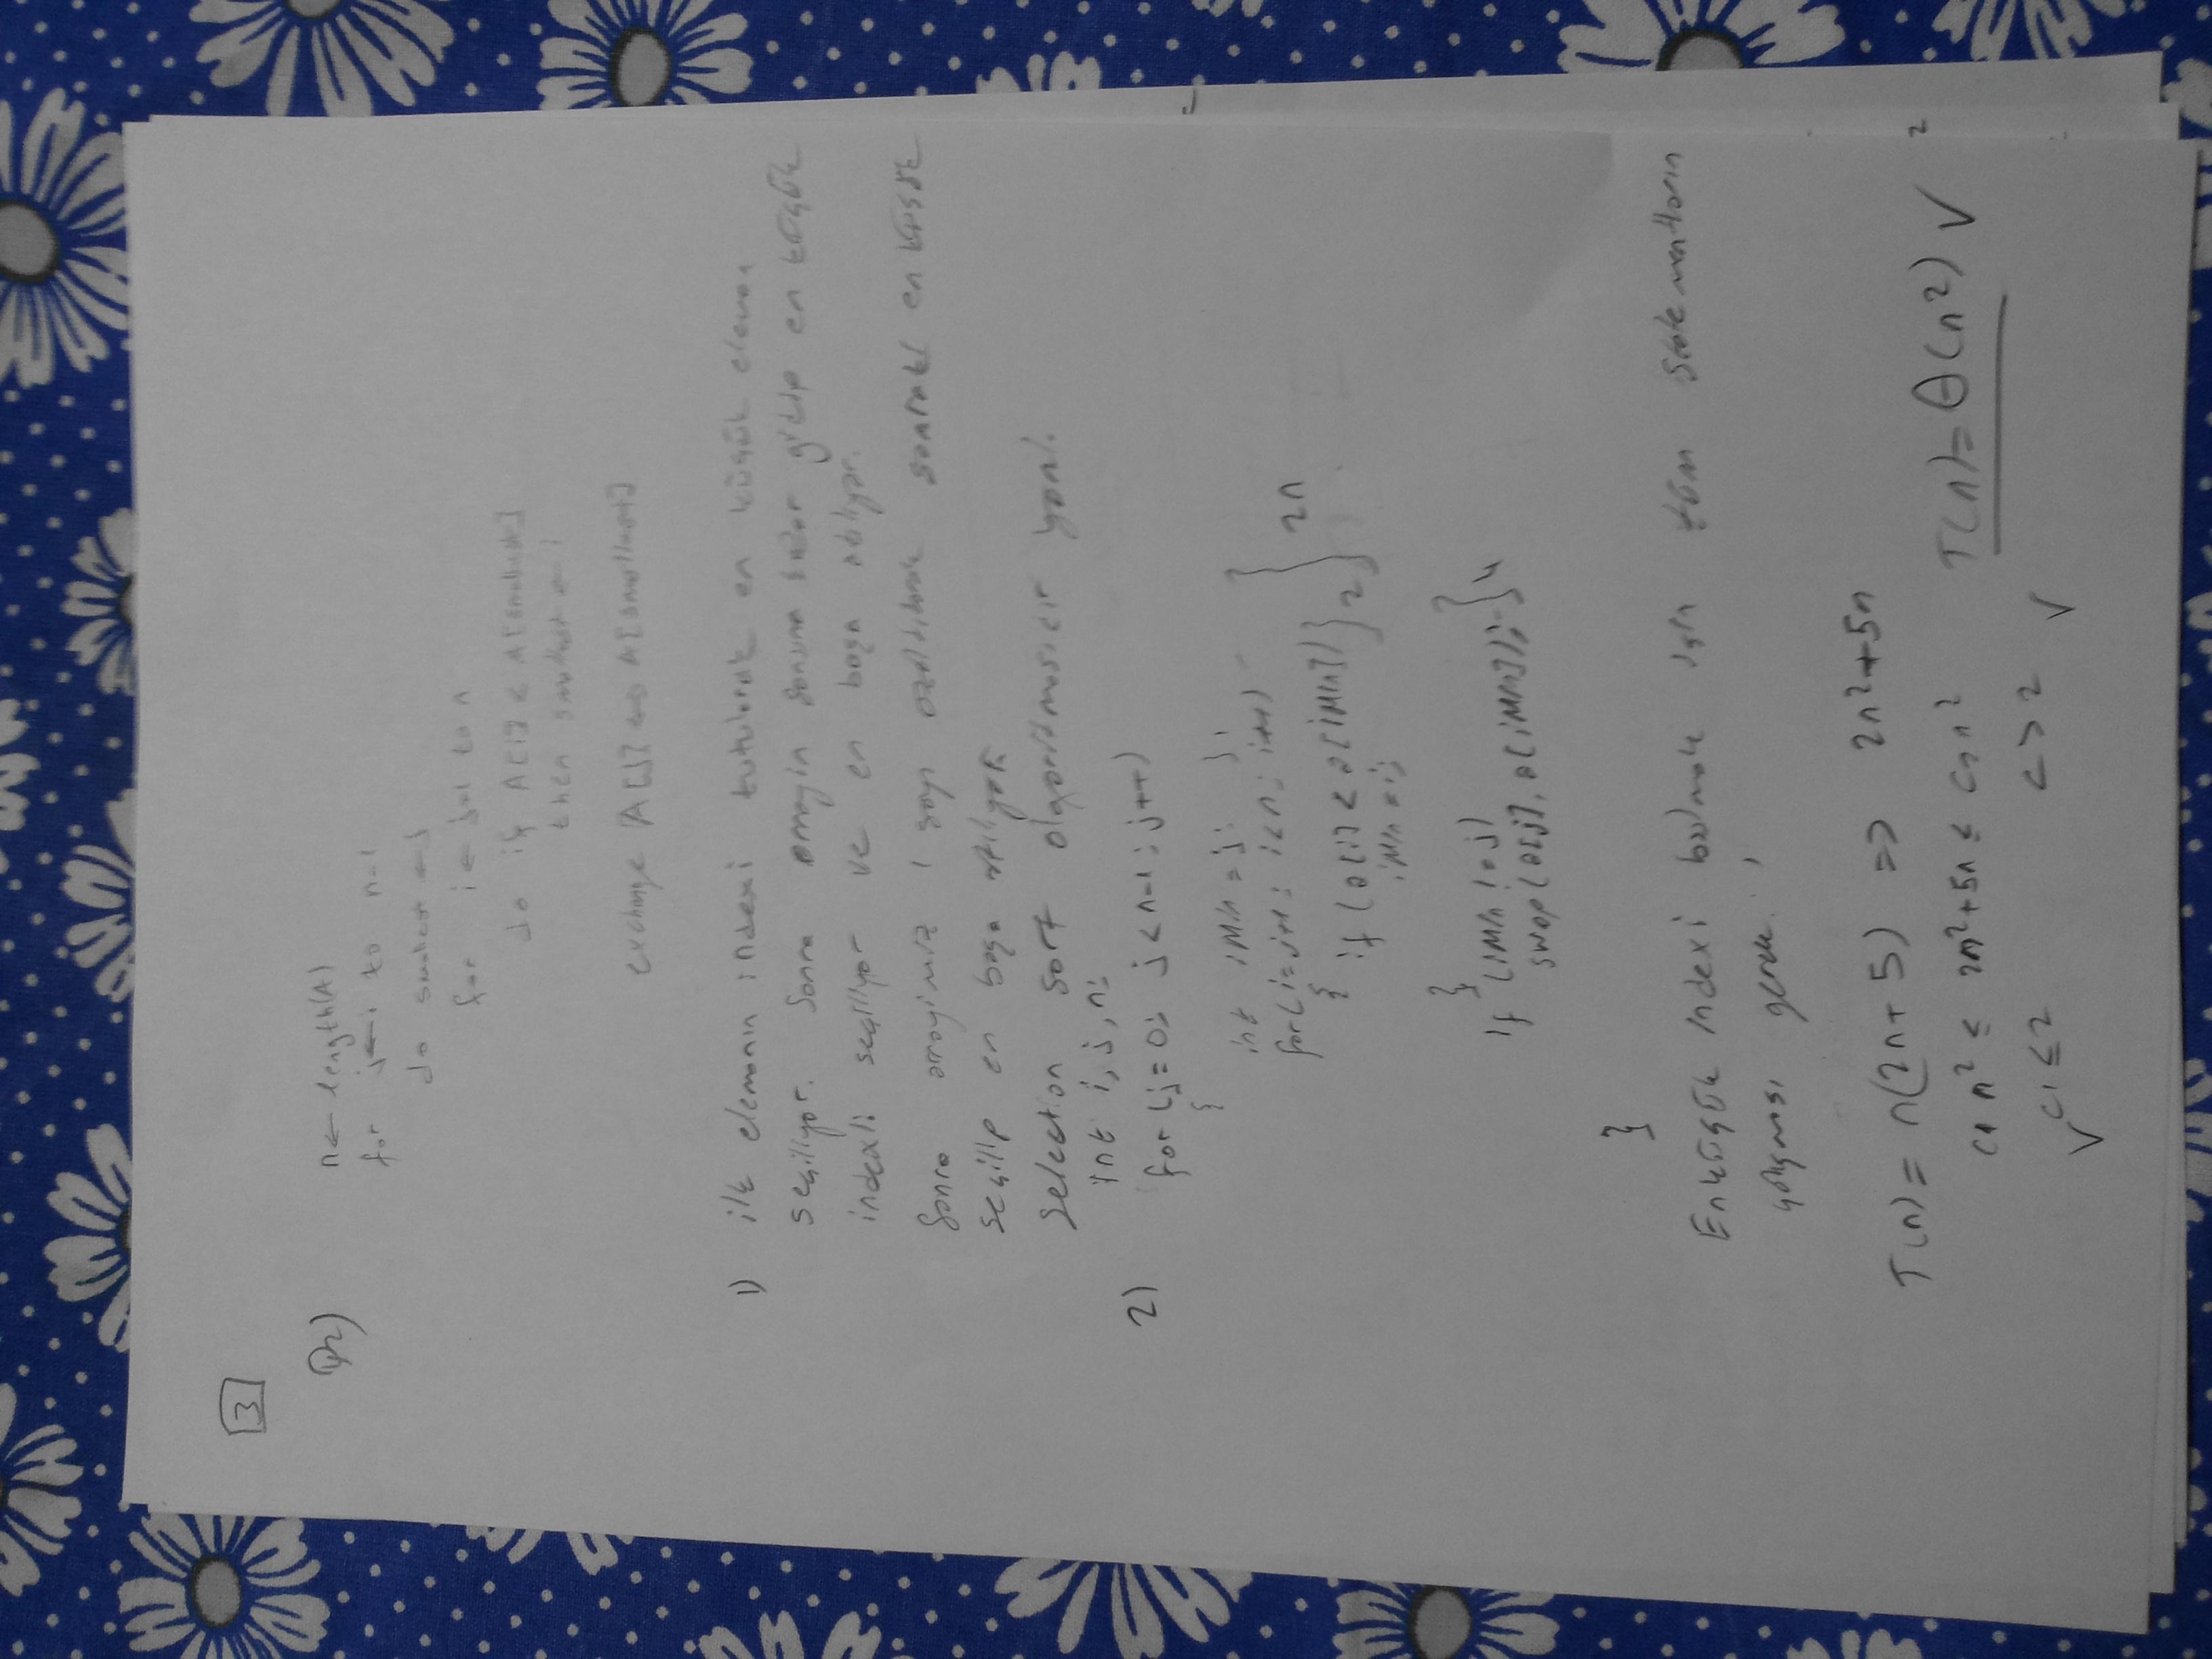 3
Q2)
n ← length(A)
for j ← i to n-1
do smallest ← j
for i ← j+1 to n
do if A[i] < A[smallest]
then smallest ← i
exchange A[j] ↔ A[smallest]
1) ilk elemanın indexi tutularak en küçük eleman
seçiliyor. Sonra arrayin sonuna kadar gidip en küçük
indexli seçiliyor ve en başa atılıyor.
Sonra arrayimiz 1 sayı azaltılarak sonraki en küçük
seçilip en başa atılıyor.
Selection sort algoritmasıdır yani.
int i, j, n;
2) for (j = 0; j < n-1; j++)
{
int iMin = j; } 1
for (i = j+1; i < n; i++)
{
if (a[i] < a[iMin]) } 2 } 2n
iMin = i;
}
if (iMin != j)
swap(a[j], a[iMin]); } 4
}
En küçük indexi bulmak için tüm statementların
çalışması gerek.
T(n) = n(2n+5) => 2n²+5n
c1 n² ≤ 2n²+5n ≤ c2 n² T(n) = Θ(n²) √
√ c1 ≤ 2 c > 2 √